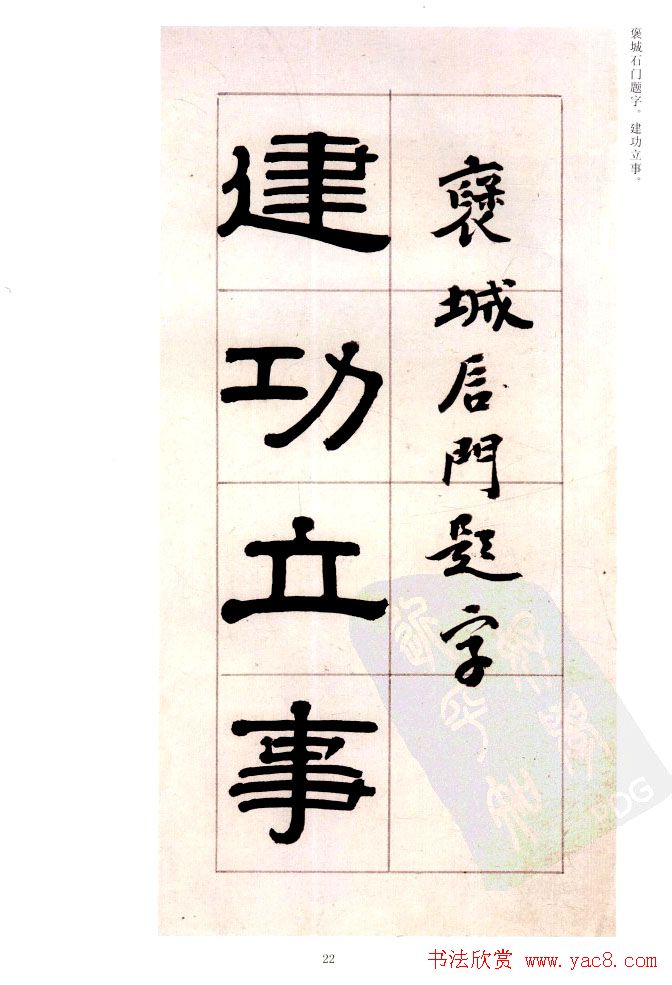 褒城石门题字。建功立事。
褒城石門題字
建功立事
22
书法欣赏 www.yac8.com
PDG